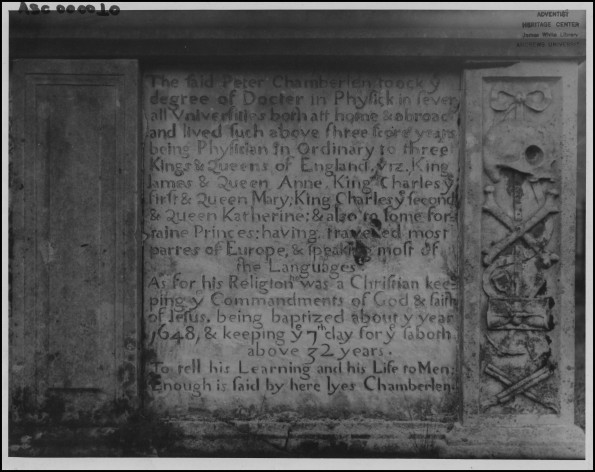 ASC 000010
ADVENTIST
HERITAGE CENTER
James White Library
ANDREWS UNIVERSITY
The said Peter Chamberlen took y
degree of Docter in Physick in sever
all Vniversities both att home & abroad
and lived such above three score years
being Physician in Ordinary to three
Kings & Queens of England, viz. King
Iames & Queen Anne, King Charles y
first & Queen Mary, King Charles y second
& Queen Katherine; & also to some for=
raine Princes; having travelled most
partes of Europe, & speaking most of
the Languages
As for his Religion he was a Christian kee=
ping y Commandments of God & faith
of Iesus, being baptized about y year
1648, & keeping y 7th day for y saboth
above 32 years.
To tell his Learning and his Life to Men:
Enough is said by here lyes Chamberlen.